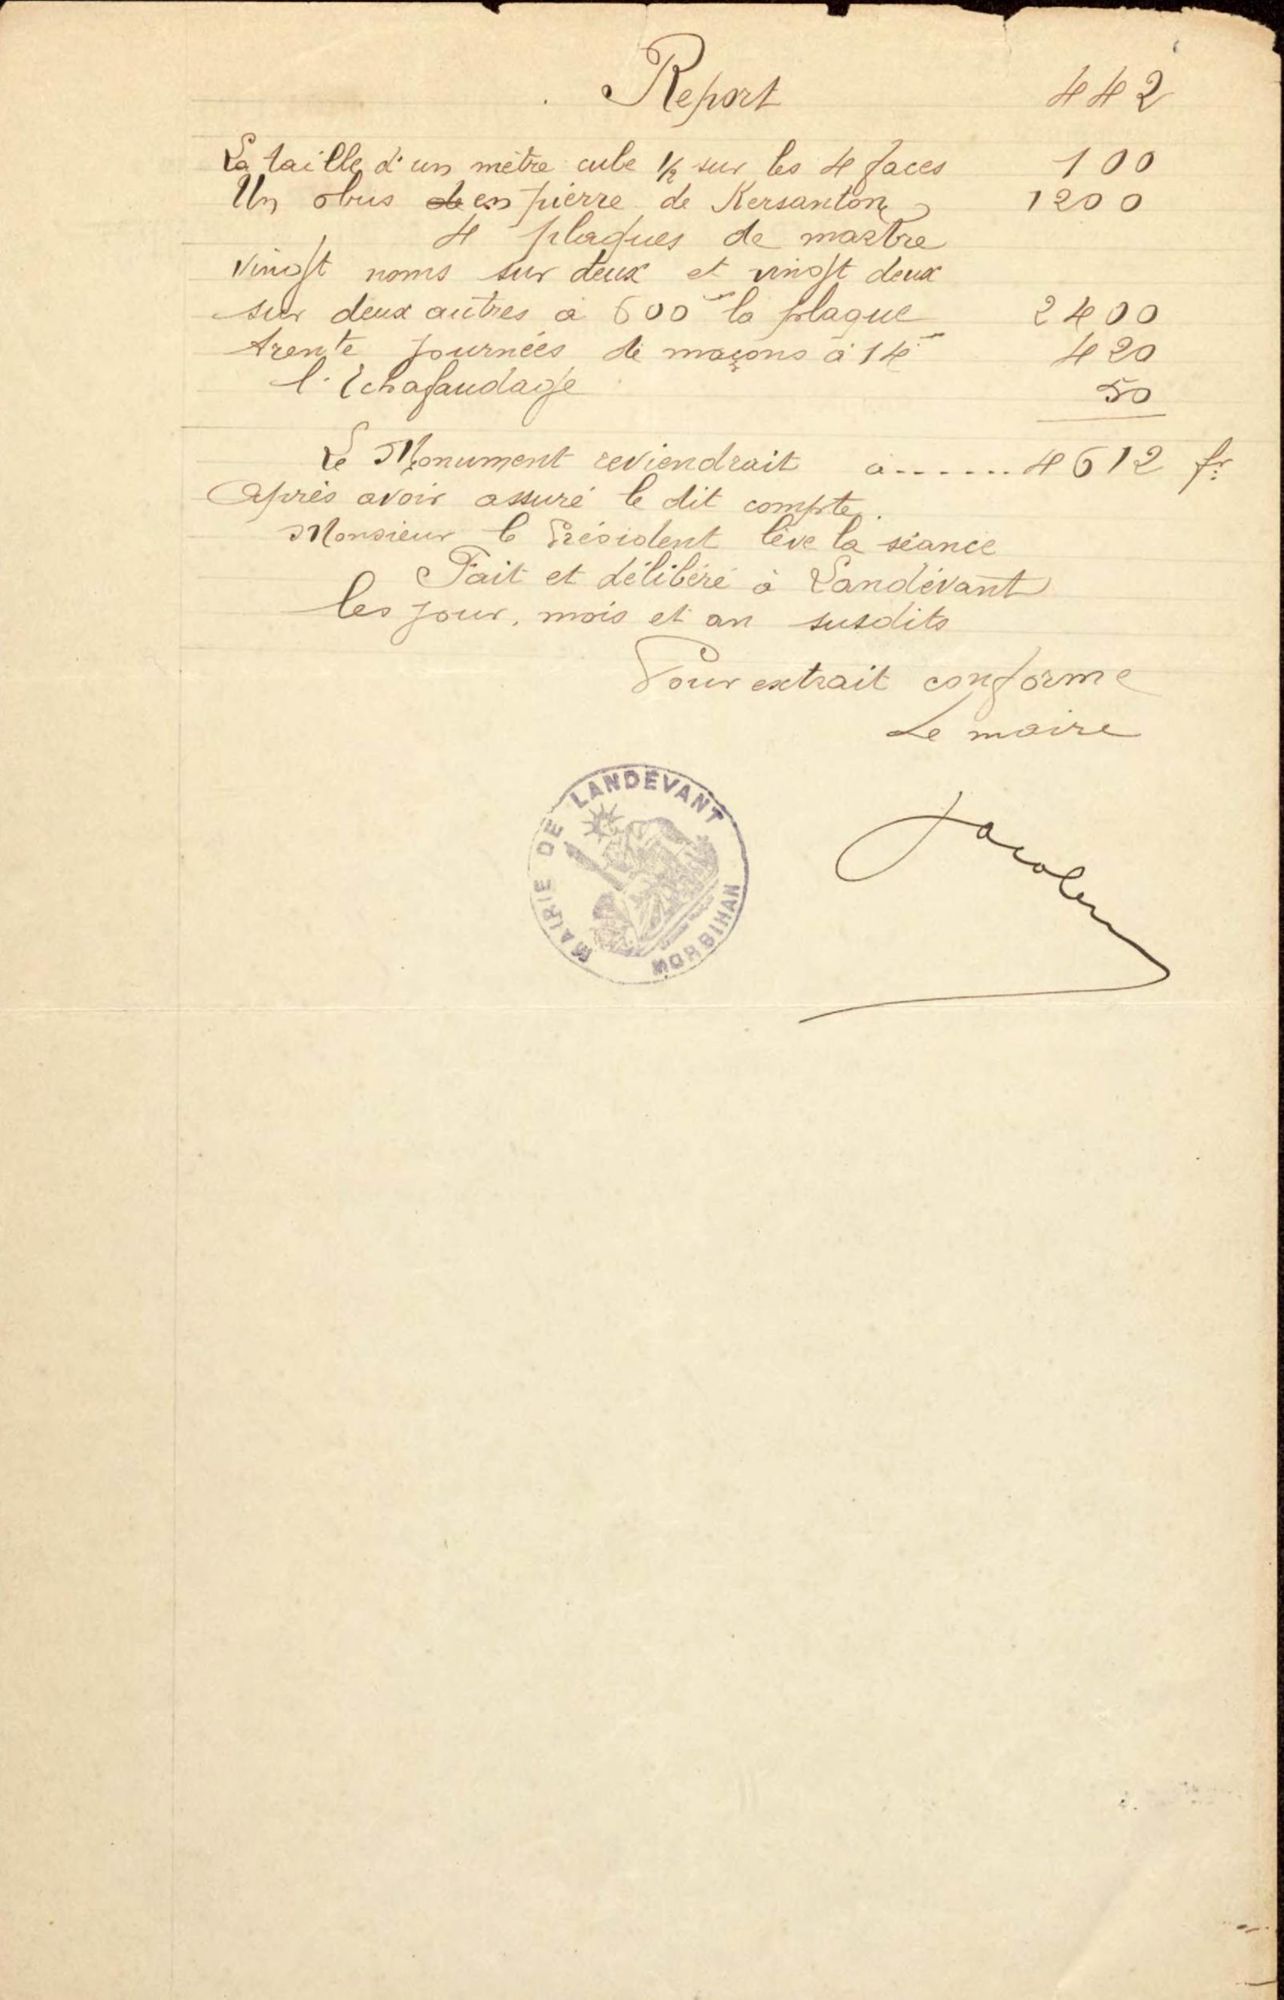 Report 442
La taille d'un mètre cube 1/2 sur les 4 faces 100
Un obus de en pierre de Kersanton 1200
4 plaques de marbre
vingt noms sur deux et vingt deux
sur deux autres à 600 la plaque 2400
trente journées de maçons à 14 420
l'échafaudage 50
Le Monument reviendrait à....... 4612 fr
Après avoir assuré le dit compte.
Monsieur le Président lève la séance
Fait et délibéré à Landévant
les jour, mois et an susdits
Pour extrait conforme
Le maire
MAIRIE DE LANDEVANT
MORBIHAN